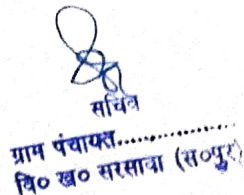 सचिव
ग्राम पंचायत..................
वि० ख० सरसावा (स०पुर)